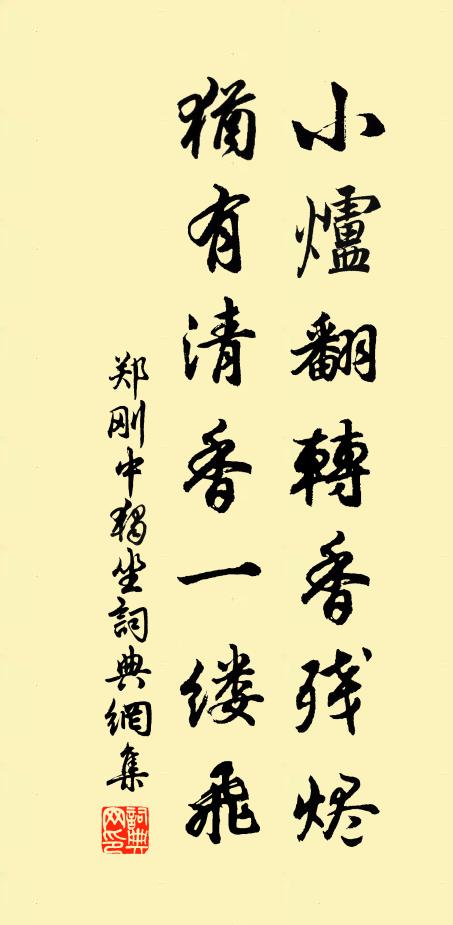 小爐翻轉香残烬
猶有清香一缕飛
郑刚中独坐詞典網集
詞典网印